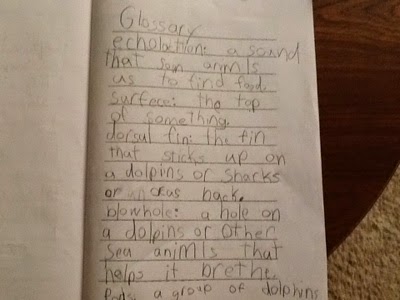 Glossary
echolaction: a sound
that som animls
us to find food.
surfece: the top
of something.
dorsal fin: the fin
that sticks up on
a dolpins or sharks
or orcas back.
blowhole: a hole on
a dolpins or other
sea animls that
helps it brethe.
Pods: a group of dolphins